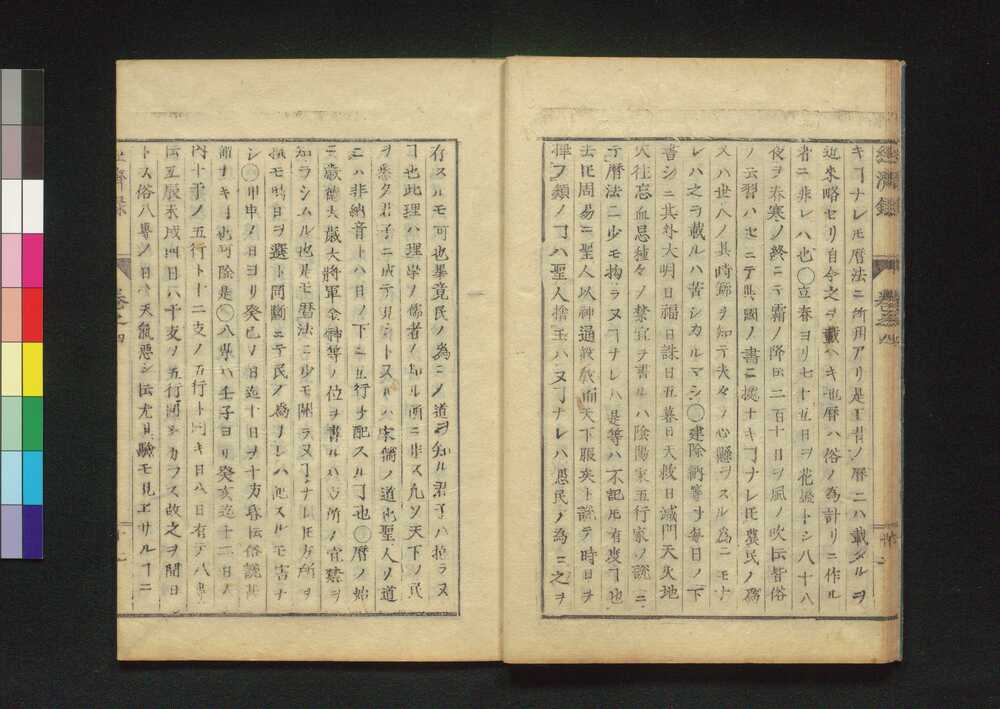 經濟録 卷之四
キヿナレ𪜈暦法ニ所用アリ是王者ノ暦ニハ載タルヲ
近來略セリ自今之ヲ載ヘキ也暦ハ俗ノ為計リニ作ル
者ニ非レハ也○立春ヨリ七十五日ヲ花盛トシ八十八
夜ヲ春寒ノ終ニテ霜ノ降伝二百十日ヲ風ノ吹伝皆俗
ノ云習ハセニテ異國ノ書ニ據ナキヿナレ𪜈農民ノ為
又ハ世人ノ其時節ヲ知テ夫々ノ心懸ヲスル為ニモナ
レハ之ヲ載ルハ苦シカルマシ○建除納等ヲ毎日ノ下
書シニ其外大明日福日誅日五墓日天赦日滅門天火地
火往忘血忌種々ノ禁宜ヲ書ルハ陰陽家五行家ノ説ニ
テ暦法ニ少モ拘ラヌヿナレハ是等ハ不記𪜈有度ヿ也
去𪜈周易ニ聖人以神道設教而天下服矣ト説テ時日ヲ
擇フ類ノヿハ聖人捨玉ハヌヿナレハ愚民ノ為ニ之ヲ
存スルモ可也畢竟民ノ為ニノ道ヲ知ル君子ハ拘ラヌ
ヿ也此理ハ理学ノ儒者ノ知ル所ニ非ス凡ソ天下ノ民
ヲ悉ク君子ニ成テ見ントスルハ宋儒ノ道也聖人ノ道
ニハ非納音トハ日ノ下ニ五行ヲ配スルヿ也○暦ノ始
ニ歳德大歳大將軍金神等ノ位ヲ書ルハ方所ノ宜禁ヲ
知ラシムル也是モ暦法ニ少モ關ラヌヿナレ𪜈方所ヲ
擇モ時日ヲ選ト同斷ニテ民ノ為ナレハ記スルモ害ナ
シ○甲申ノ日ヨリ癸巳ノ日迄十日ヲ十方暮伝俗説甚
謂ナキヿ也可除是○八專ハ壬子ヨリ癸亥迄十二日ノ
内十干ノ五行ト十二支ノ五行ト同キ日八日有テ八專
伝丑辰午戌四日ハ干支ノ五行同シカラス故之ヲ間日
トス俗八專ノ日ハ天氣惡シ伝尤其驗モ見エサルヿニ
經濟録 卷之四